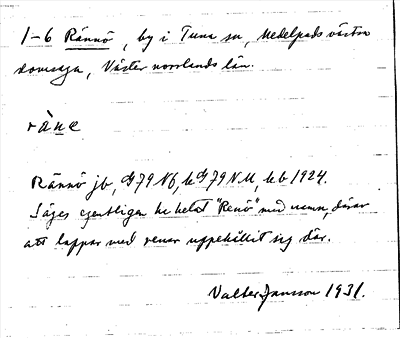 1-6 Rännö, by i Tuna sn, Medelpads västra
domsaga, Västernorrlands län.
rä̀ne
Rännö jb, G79 Nf, kG79 NM, kb 1924.
Säges egentligen ha hetat "Renö" med namn, därav
att lappar med renar uppehållit sig där.
Valter Jansson 1931.